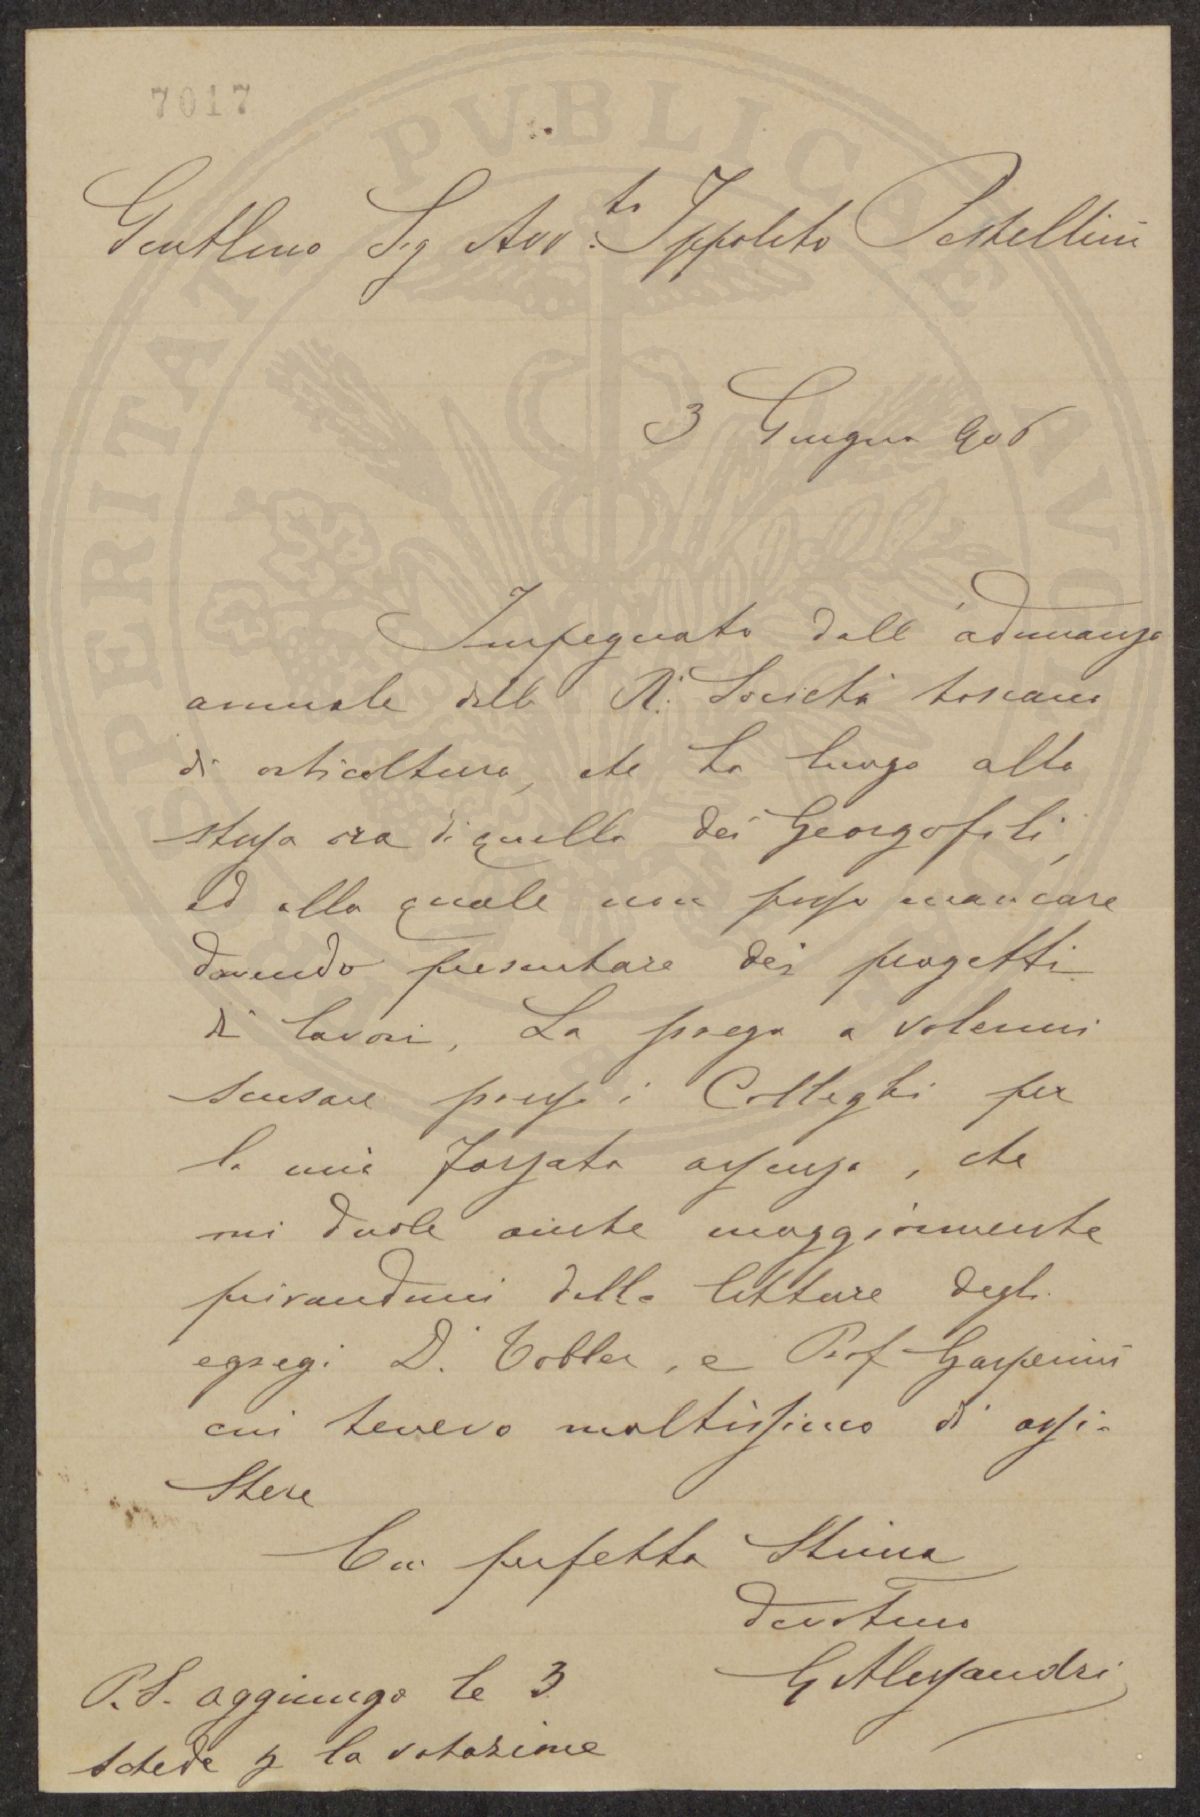 7017
Gentilmo Sig Avv.to Ippolito Pestellini
3 Giugno 906
Impegnato dall'adunanza
annuale della R. Società toscana
di orticoltura, che ha luogo alla
stessa ora di quella dei Georgofili,
ed alla quale non posso mancare
dovendo presentare dei progetti
di lavori, La prego a volermi
scusare presso i Colleghi per
la mia forzata assenza, che
mi duole anche maggiormente
privandomi delle letture degli
egregi D. Tobler, e Prof Gasperini
cui tenevo moltissimo di assi-
stere
Con perfetta stima
devotmo
G Alessandri
P.S. aggiungo le 3
schede p la votazione
PROSPERITATI PUBLICAE AUGENDAE